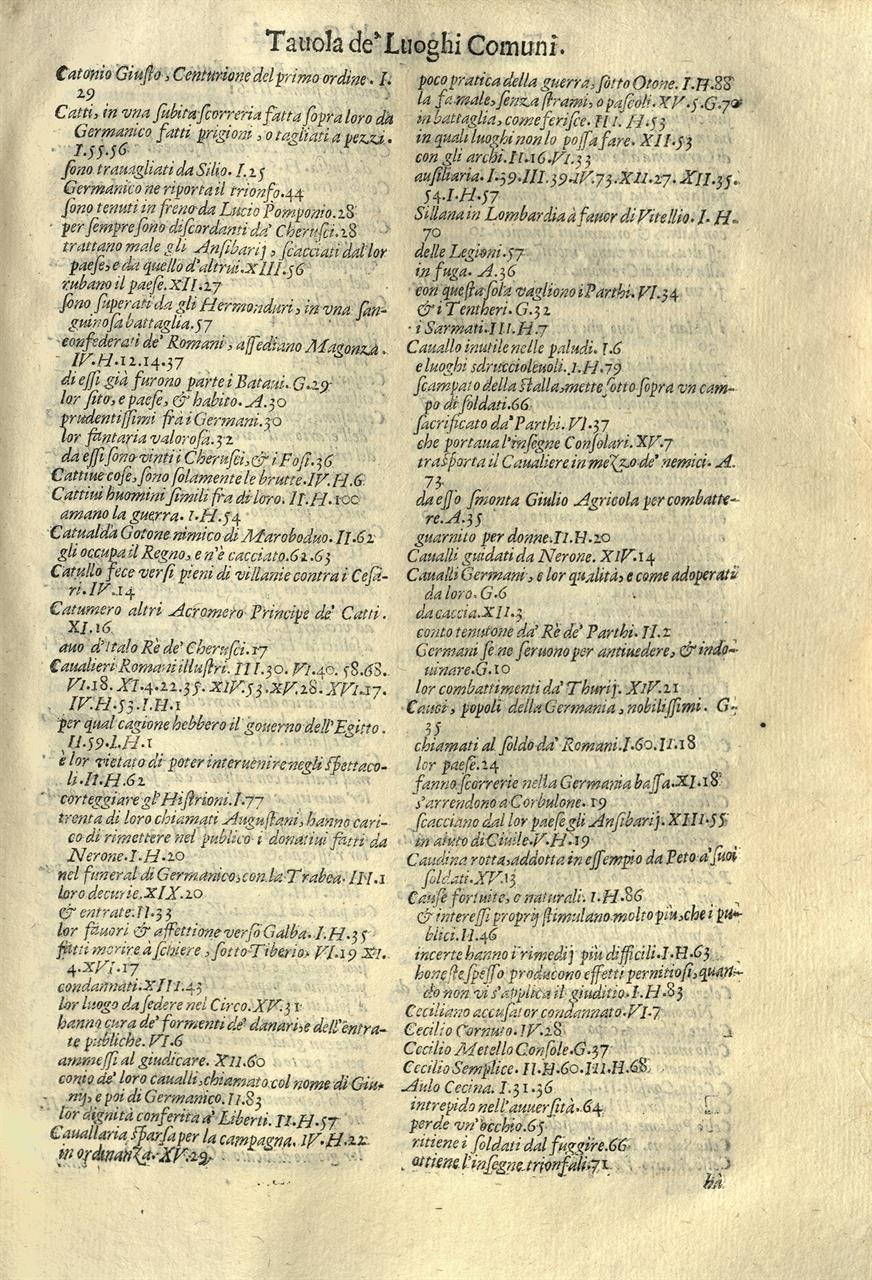 Tauola de' Luoghi Comuni.
Catonio Giusto, Centurione del primo ordine. I.
29
Catti, in vna subita scorreria fatta sopra loro da
Germanico fatti prigioni, o tagliati a pezzi.
I.55.56
sono trauagliati da Silio. I.25
Germanico ne riporta il trionfo.44
sono tenuti in freno da Lucio Pomponio.28
per sempre sono discordanti da' Cherusci.28
trattano male gli Ansibarij, scacciati dal lor
paese, e da quello d'altrui.XIII.56
rubano il paese.XII.27
sono superati da gli Hermonduri, in vna san-
guinosa battaglia.57
confederati de' Romani, assediano Magonza.
IV.H.12.14.37
di essi già furono parte i Bataui.G.29
lor sito, e paese, & habito. A.30
prudentissimi fra i Germani.30
lor fantaria valorosa.32
da essi sono vinti i Cherusci, & i Fosi.36
Cattiue cose, sono solamente le brutte.IV.H.6
Cattiui huomini simili fra di loro. II.H.100
amano la guerra. I.H.54
Catualda Gotone nimico di Maroboduo. II.62
gli occupa il Regno, e n'è cacciato.62.63
Catullo fece versi pieni di villanie contra i Cesa-
ri.IV.14
Catumero altri Acromero Principe de' Catti.
XI.16
auo d'Italo Rè de' Cherusci.17
Caualieri Romani illustri. III.30. VI.40. 58.68.
VI.18. XI.4.22.35. XIV.53.XV.28. XVI.17.
IV.H.53.I.H.1
per qual cagione hebbero il gouerno dell'Egitto.
II.59.I.H.1
è lor vietato di poter interuenire negli spettaco-
li.II.H.62
corteggiare gl'Histrioni.I.77
trenta di loro chiamati Augustani, hanno cari-
co di rimettere nel publico i donatiui fatti da
Nerone.I.H.20
nel funeral di Germanico, con la Trabea. III.1
loro decurie.XIX.20
& entrate.II.33
lor fauori & affettione verso Galba. I.H.35
fatti morire à schiere, sotto Tiberio. VI.19 XI.
4.XVI.17
condannati.XIII.43
lor luogo da sedere nel Circo.XV.31
hanno cura de' formenti de' danari, e dell'entra-
te publiche. VI.6
ammessi al giudicare. XII.60
conio de' loro caualli, chiamato col nome di Giu-
nij, e poi di Germanico.II.83
lor dignità conferita a' Liberti. II.H.57
Cauallaria sparsa per la campagna. IV.H.22
in ordinanza.XV.29
poco pratica della guerra, sotto Otone. I.H.88
la fa male, senza strami, o pascoli.XV.5.G.7
in battaglia, come ferisce. III. H.53
in quali luoghi non lo possa fare. XII.53
con gli archi.II.16.VI.33
ausiliaria. I.39.III.39.IV.73.XII.27. XII.35.
54.I.H.57
Sillana in Lombardia à fauor di Vitellio. I. H.
70
delle Legioni.57
in fuga. A.36
con questa sola vagliono i Parthi.VI.34
& i Tentheri.G.32
i Sarmati.III.H.7
Cauallo inutile nelle paludi. I.6
e luoghi sdruccioleuoli.I.H.79
scampato della stalla, mette sotto sopra vn cam-
po di soldati.66
sacrificato da' Parthi.VI.37
che portaua l'insegne Consolari.XV.7
trasporta il Caualiere in mezzo de' nemici. A.
73
da esso smonta Giulio Agricola per combatte-
re.A.35
guarnito per donne.II.H.20
Caualli guidati da Nerone. XIV.14
Caualli Germani, e lor qualità, e come adoperati
da loro.G.6
da caccia.XII.3
conto tenutone da' Rè de' Parthi.II.2
Germani se ne seruono per antiuedere, & indo-
uinare.G.10
lor combattimenti da' Thurij. XIV.21
Cauci, popoli della Germania, nobilissimi. G.
35
chiamati al soldo da' Romani.I.60.II.18
lor paese.24
fanno scorrerie nella Germania bassa.XI.18
s'arrendono a Corbulone. 19
scacciano dal lor paese gli Ansibarij. XIII.55
in aiuto di Ciuile.V.H.19
Caudina rotta, addotta in essempio da Peto a' suoi
soldati.XV.13
Cause fortuite, e naturali. I.H.86
& interessi proprij stimulano molto più, che i pu-
blici.II.46
incerte hanno i rimedij più difficili.I.H.63
honeste spesso producono effetti pernitiosi, quan-
do non vi s'applica il giuditio.I.H.83
Ceciliano accusator condannato.VI.7
Cecilio Cornuto.IV.28
Cecilio Metello Console.G.37
Cecilio Semplice. II.H.60.III.H.68
Aulo Cecina. I.31.36
intrepido nell'auuersità.64
perde vn'occhio.65
ritiene i soldati dal fuggire.66
ottiene l'insegne trionfali.71
hà